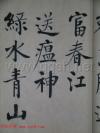 富春江
送瘟神
綠水青山